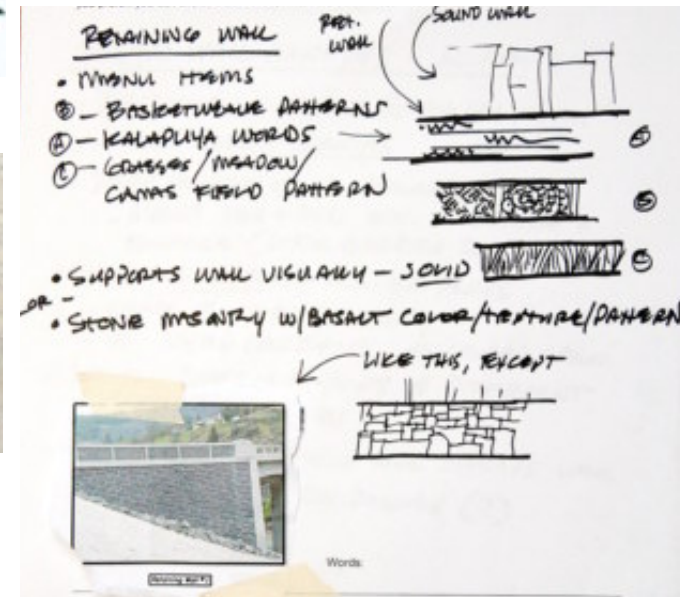 RETAINING WALL
RET. WALL
SOUND WALL
• MENU ITEMS
Ⓑ – BASKETWEAVE PATTERNS
Ⓐ – KALAPUYA WORDS
Ⓒ – GRASSES/MEADOW/
CAMAS FIELD PATTERN
• SUPPORTS WALL VISUALLY – SOLID
– OR –
• STONE MASONRY W/BASALT COLOR/TEXTURE/PATTERN
LIKE THIS, EXCEPT
Words: